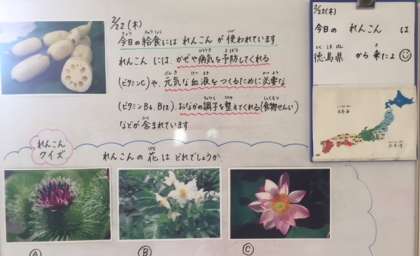 2/22(木)
今日の給食には れんこんが 使われています
れんこん には、かぜや病気を予防してくれる
(ビタミンC)や、元気な血液をつくるために必要な
(ビタミンB6、B12)、おなかの調子を整えてくれる(食物せんい)
などが 含まれています
れんこん
クイズ
れんこんの 花は どれでしょうか
Ⓐ
Ⓑ
Ⓒ
2/22(木)
今日の れんこん は
徳島県 から 来たよ